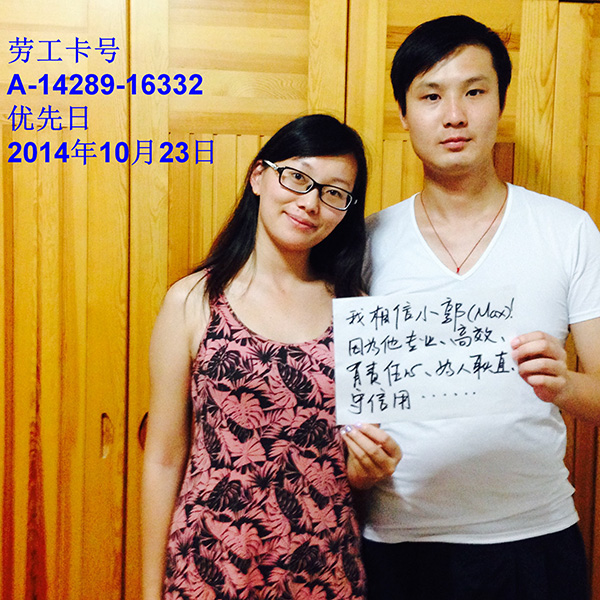 劳工卡号
A-14289-16332
优先日
2014年10月23日
我相信小郭(Max)!
因为他专业、高效、
有责任心、为人耿直、
守信用······